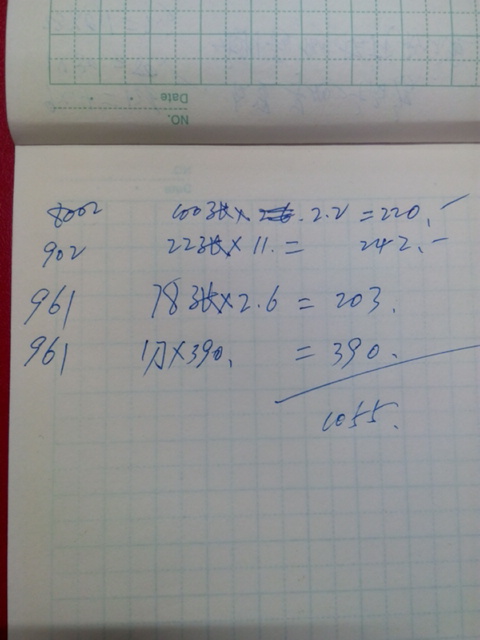 Date
NO.
8002 100张×2.2=220.-
902 22张×11.= 242.-
961 78张×2.6 = 203.
961 1月×390. = 390.
1055.